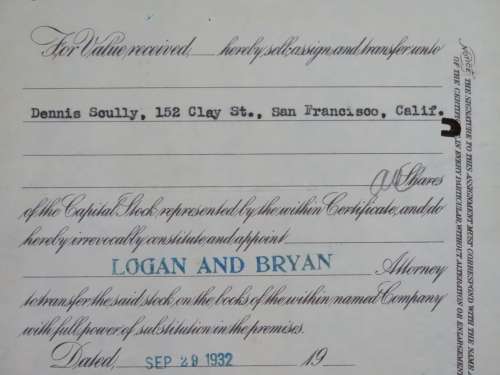 For Value received, hereby sell, assign and transfer unto
Dennis Scully, 152 Clay St., San Francisco, Calif.
all Shares
of the Capital Stock, represented by the within Certificate, and do
hereby irrevocably constitute and appoint
LOGAN AND BRYAN Attorney
to transfer the said stock, on the books of the within named Company
with full power of substitution in the premises.
Dated, SEP 29 1932 19
NOTICE THE SIGNATURE TO THIS ASSIGNMENT MUST CORRESPOND WITH THE NAME
OF THE CERTIFICATE, IN EVERY PARTICULAR, WITHOUT ALTERATION OR ENLARGEMENT